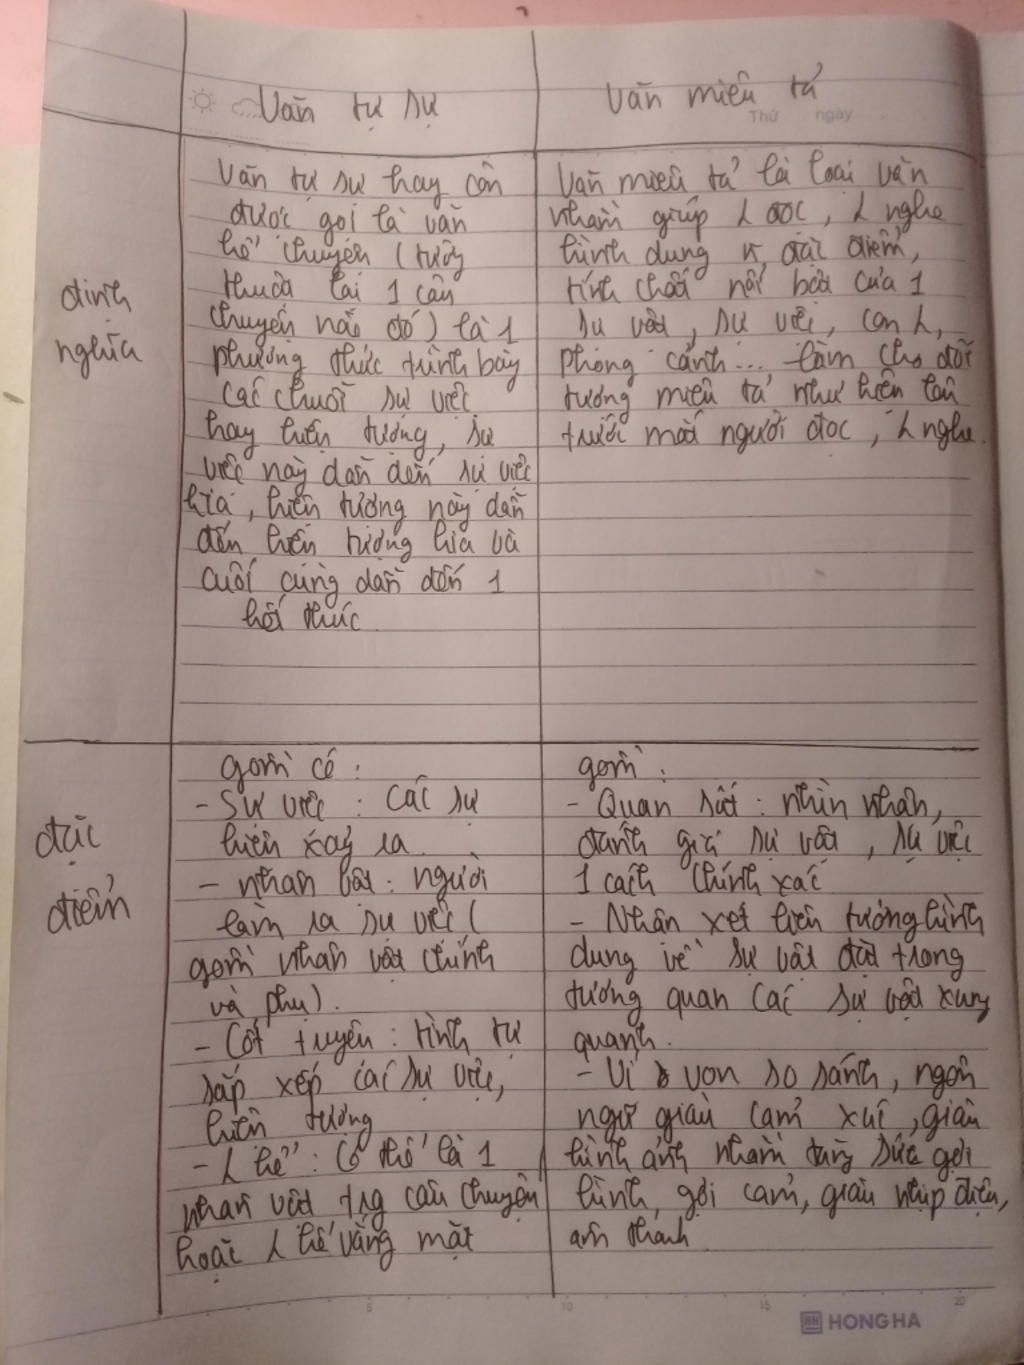 Văn tự sự
Văn miêu tả
Thứ ngày
định
nghĩa
Văn tự sự hay còn
được gọi là văn
kể chuyện (tường
thuật lại 1 câu
chuyện nào đó) là 1
phương thức trình bày
các chuỗi sự việc
hay hiện tượng, sự
việc này dẫn đến sự việc
kia, hiện tượng này dẫn
đến hiện tượng kia và
cuối cùng dẫn đến 1
kết thúc
Văn miêu tả là loại văn
nhằm giúp L đọc, L nghe
hình dung n đặc điểm,
tính chất nổi bật của 1
sự vật, sự việc, con L,
phong cảnh... làm cho đối
tượng miêu tả như hiện lên
trước mắt người đọc, L nghe.
đặc
điểm
gồm có :
- Sự việc : các sự
kiện xảy ra
- nhân vật : người
làm ra sự việc (
gồm nhân vật chính
và phụ).
- Cốt truyện : trình tự
sắp xếp các sự việc,
hiện tượng
- L kể : Có thể là 1
nhân vật trg câu chuyện
hoặc L kể vắng mặt
gồm :
- Quan sát : nhìn nhận,
đánh giá sự vật, sự việc
1 cách chính xác
- Nhận xét liên tưởng hình
dung về sự vật đặt trong
tương quan các sự vật xung
quanh.
- Ví von so sánh, ngôn
ngữ giàu cảm xúc, giàu
hình ảnh nhằm tăng sức gợi
hình, gợi cảm, giàu nhịp điệu,
âm thanh
5 10 15 20
HH HONG HA